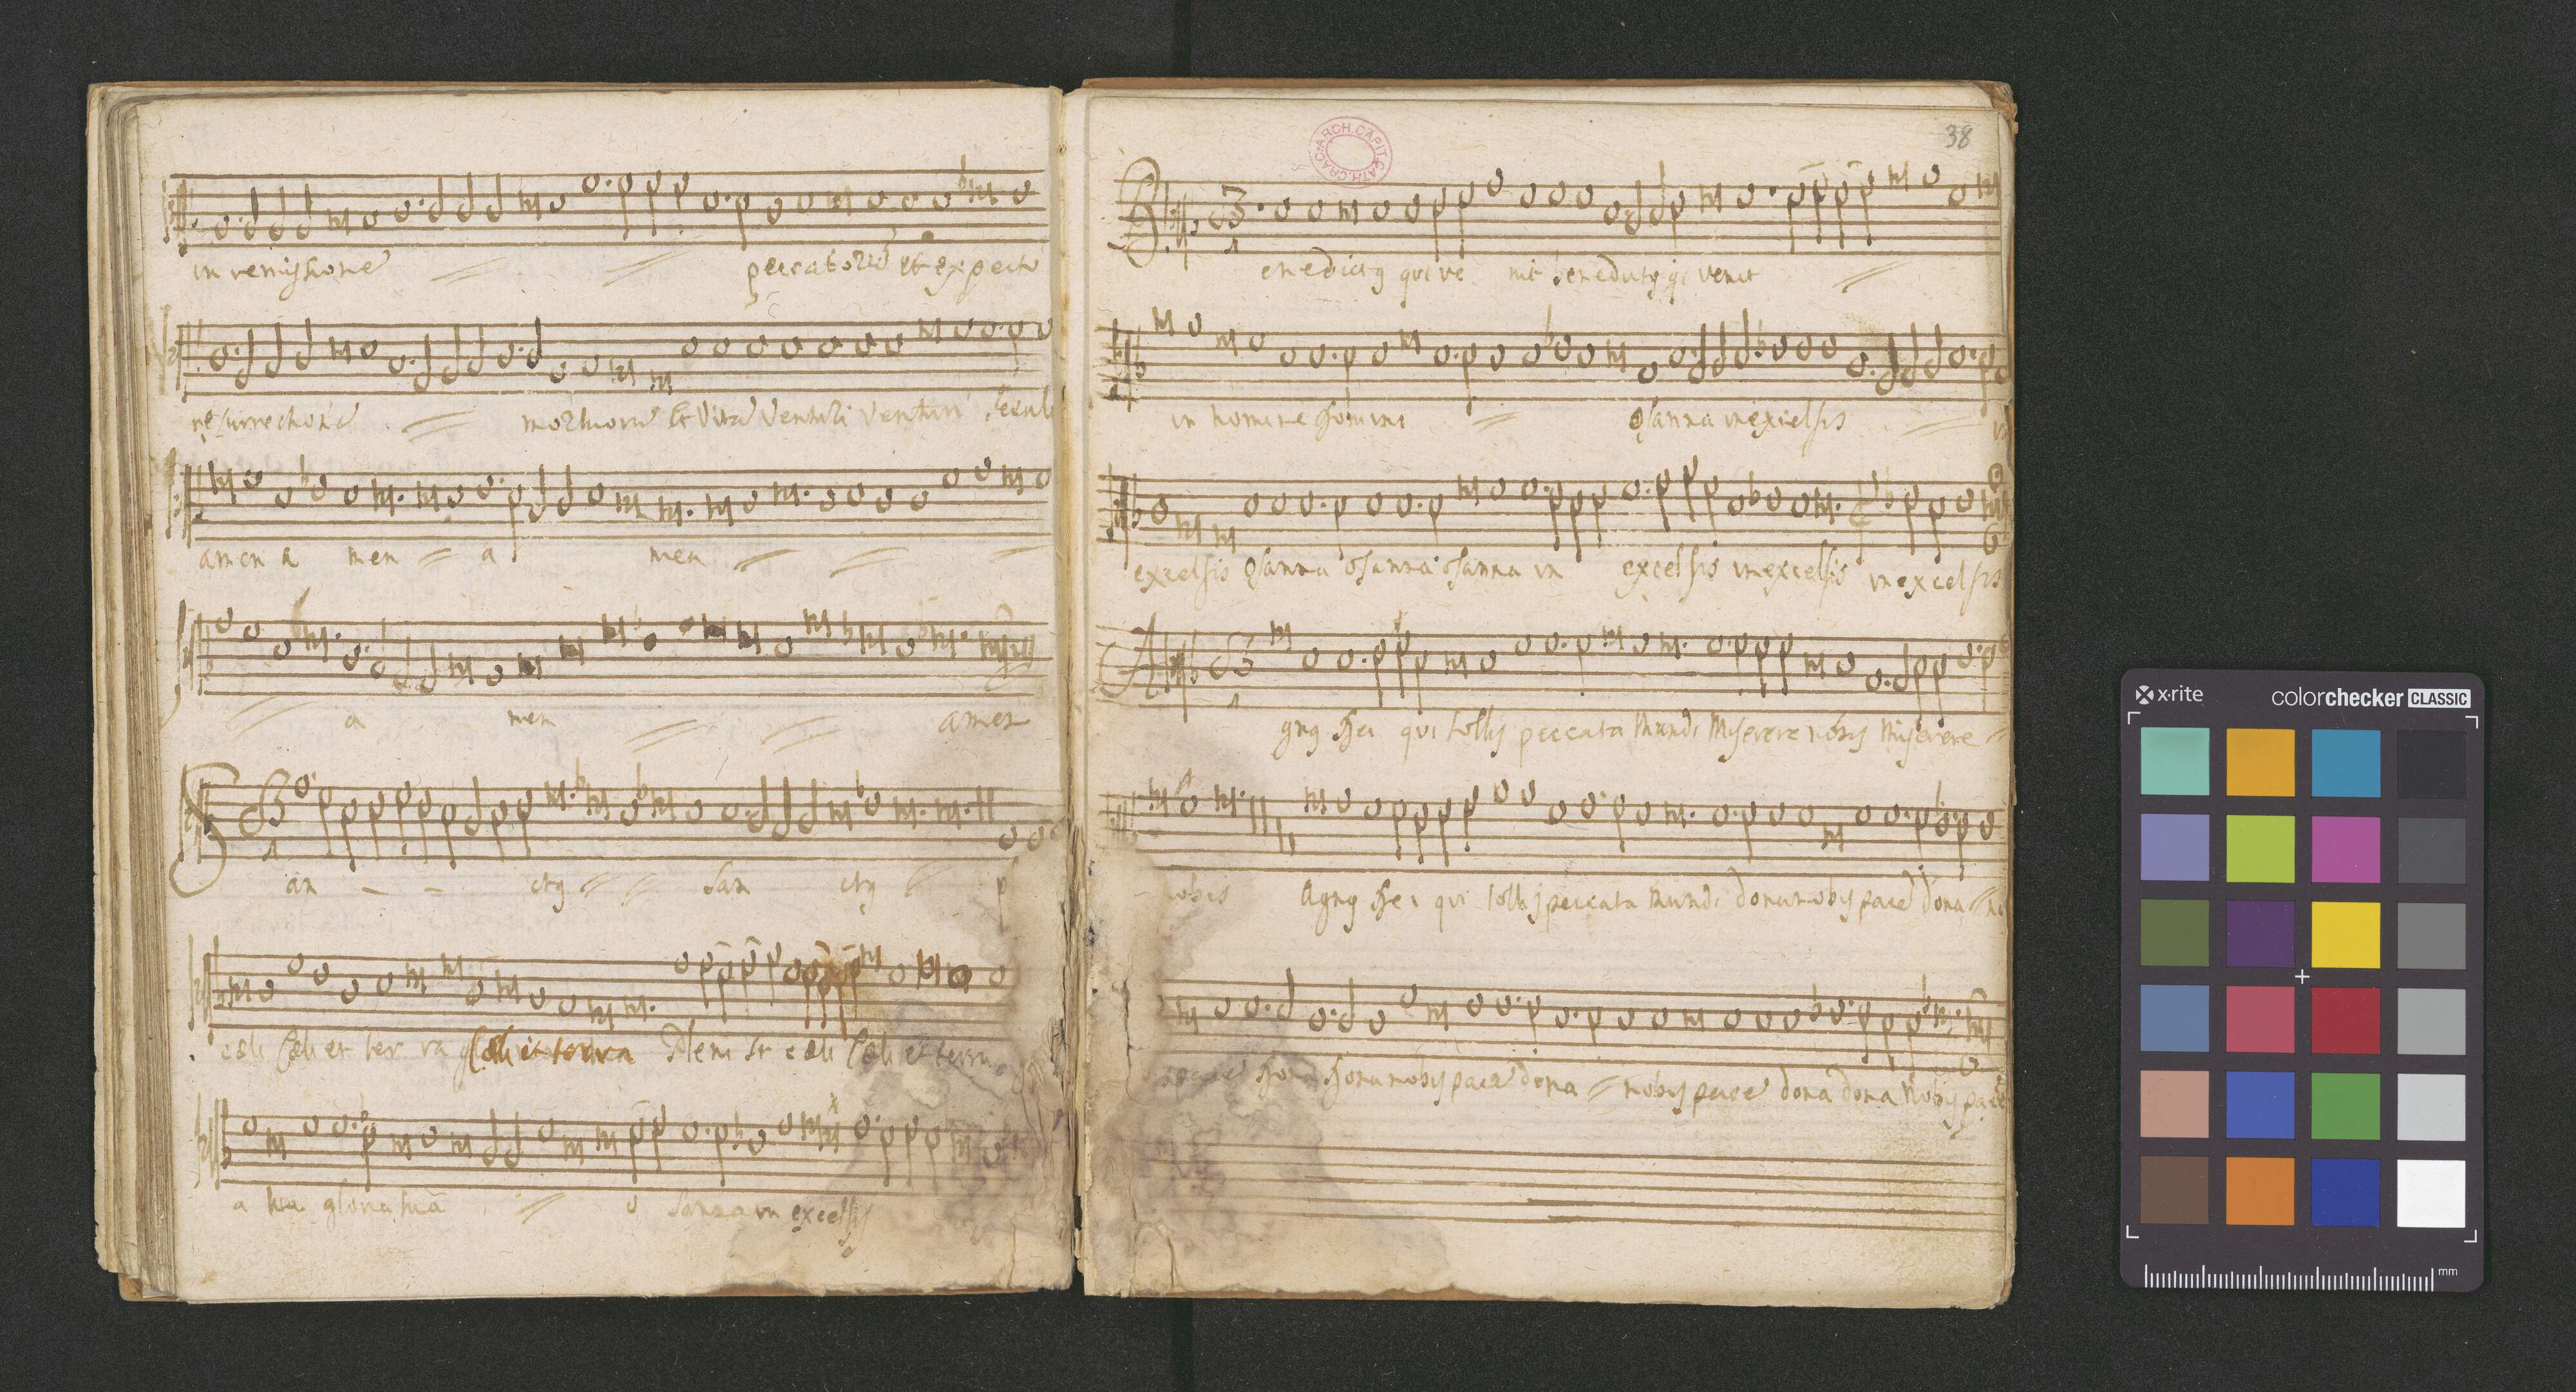 in remissione peccatorū et expecto
resurrectionē mortuorū et vitā venturi venturi seculi
amen a men a men
a men amen
San ctꝯ San ctꝯ
cæli cæli et ter ra cæli et terra Pleni st cæli cæli et terra
a tua gloria tua o sanna in excelsis
38
ARCH. CAPIT. CATH. CRAC.
Benedictꝯ qui ve nit benedictꝯ qi venit
in nomine Domini Osanna in excelsis in
excelsis Osanna osanna osanna in excelsis in excelsis in excelsis
Agnꝯ Dei qui tollis peccata Mundi Miserere nobis Miserere
nobis Agnꝯ Dei qui tollis peccata Mundi dona nobis pacē dona
pacē Dona Dona nobis pacē dona nobis pacē dona dona nobis pacē
x-rite colorchecker CLASSIC
mm